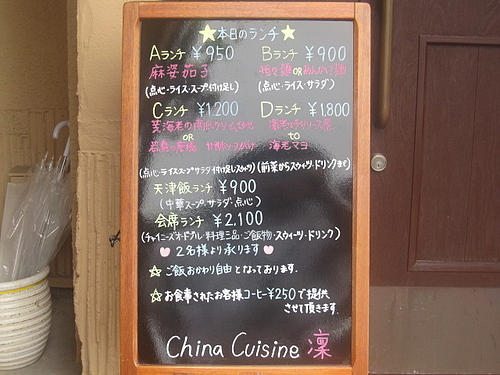 ★本日のランチ★
Aランチ ¥950
麻婆茄子
(点心・ライス・スープ付け足し)
Bランチ ¥900
担々麺 OR あんかけ麺
(点心・ライス・サラダ)
Cランチ ¥1,200
芝海老の
OR
若鳥の
Dランチ ¥1,800
to
海老マヨ
(点心・ライス・スープ・サラダ付
(前菜からスウィーツ・ドリンクまで)
天津飯ランチ ¥900
(中華スープ・サラダ・点心)
会席ランチ ¥2,100
(チャイニーズオードブル・料理三品・ご飯物・スウィーツ・ドリンク)
2名様より承ります
☆ ご飯おかわり自由となっております.
☆ お食事されたお客様コーヒー¥250で提供
させて頂きます.
China Cuisine 凛